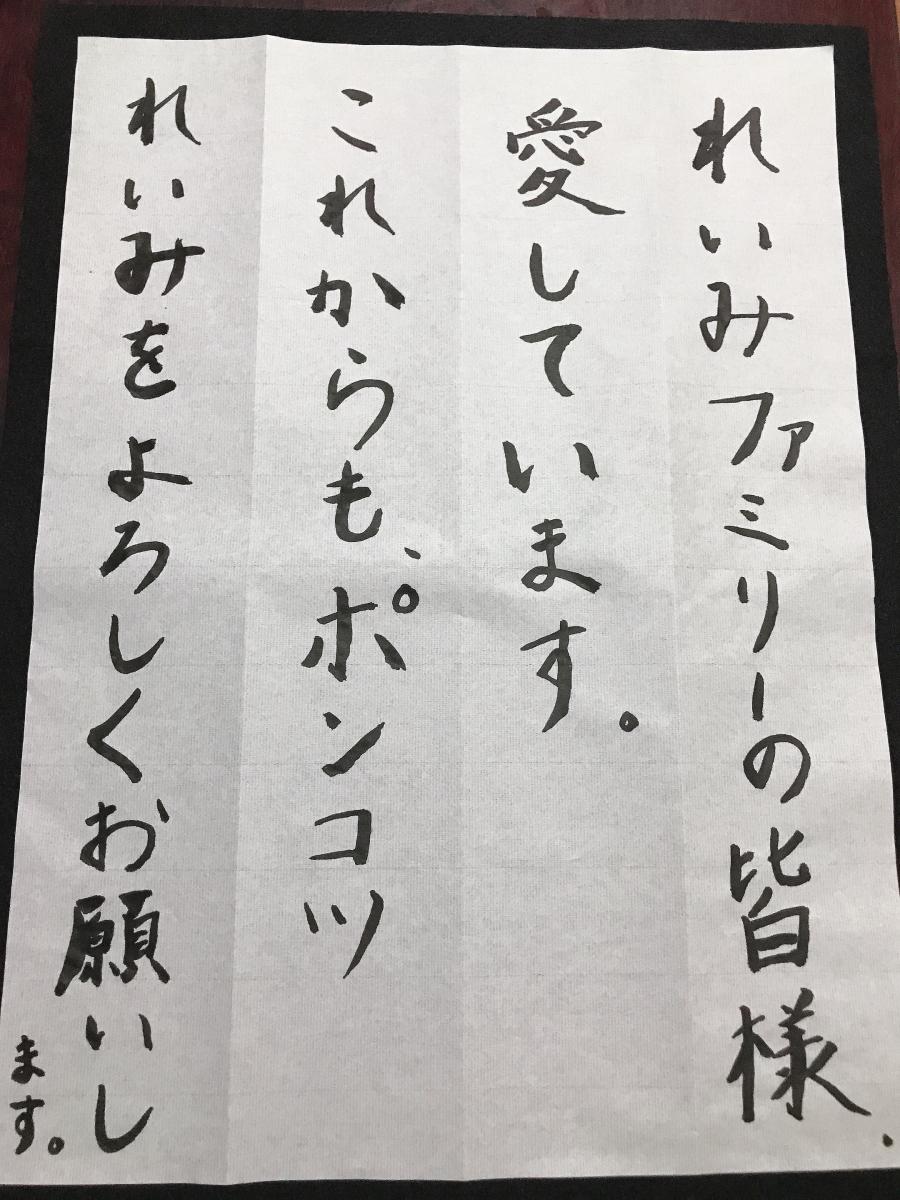 れいみファミリーの皆様、
愛しています。
これからも、ポンコツ
れいみをよろしくお願いし
ます。